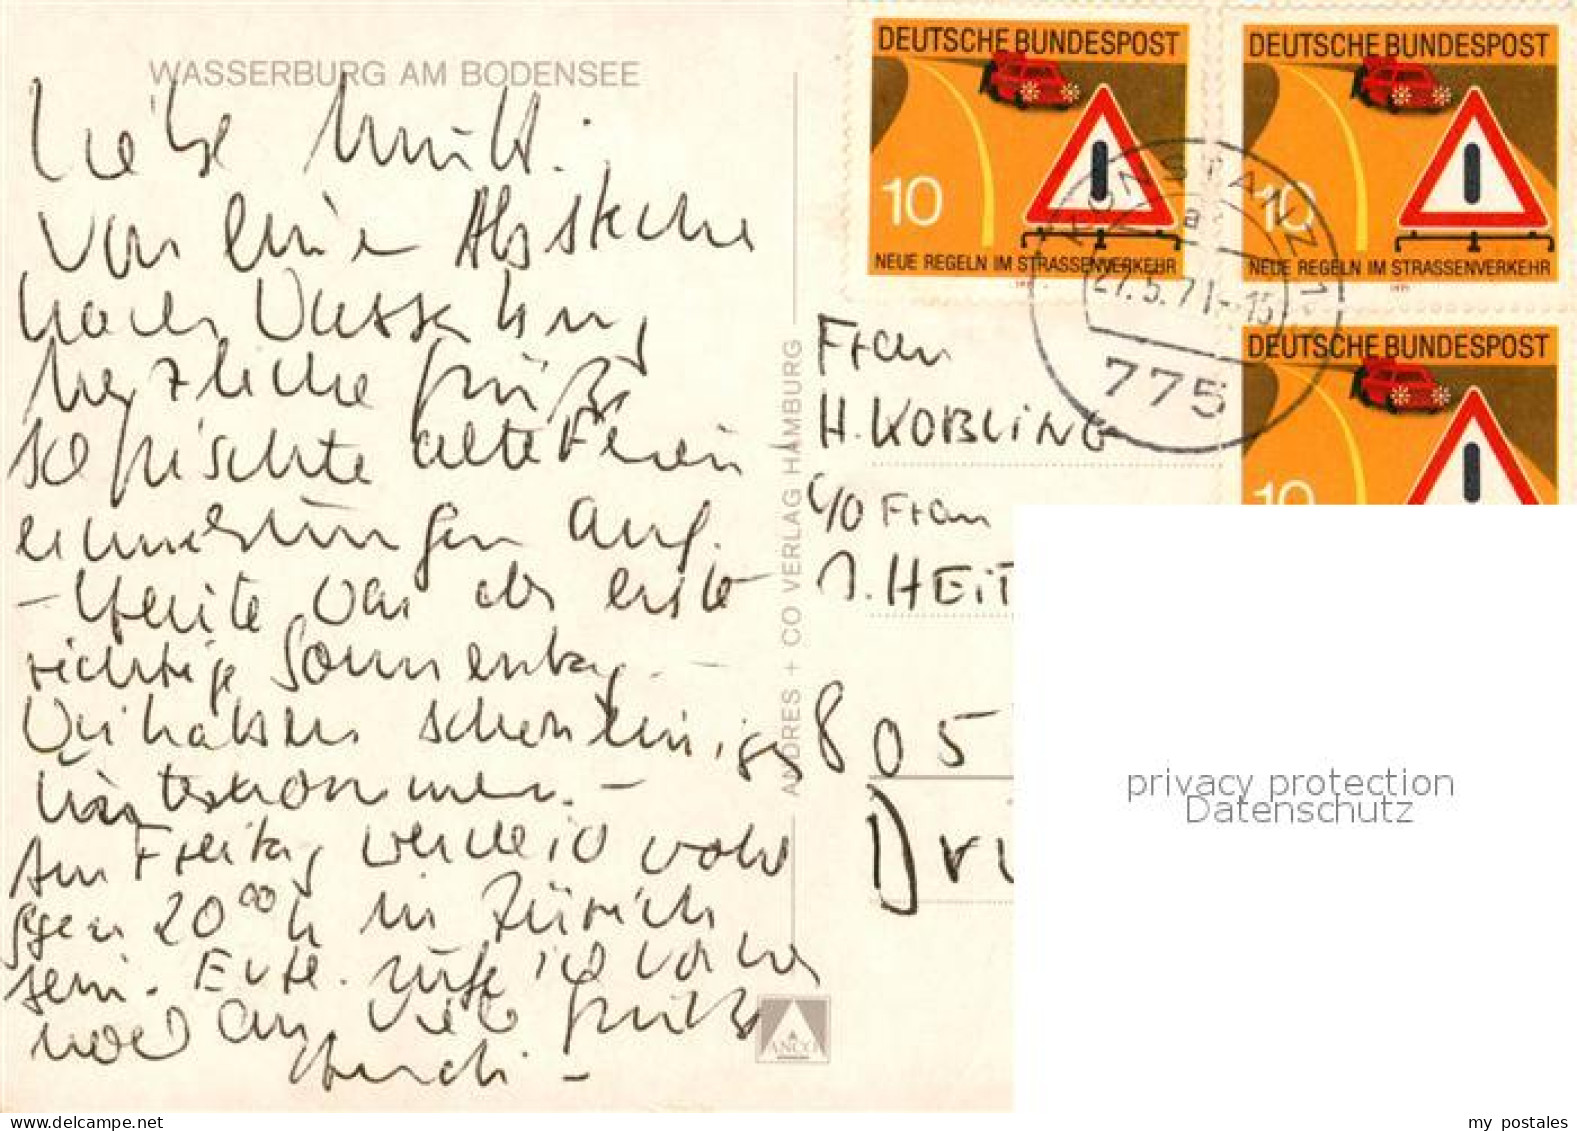 WASSERBURG AM BODENSEE
Liebe Mutti!
Von einem Abstecher
nach Wasserburg
herzliche Grüße,
so frischte alte Ferien
erinnerungen auf.
– Heute war der erste
richtige Sonnentag. –
Wir haben schon einiges
hinter
Am Freitag werde ich wohl
gegen 20⁰⁰ h in Zürich
sein. Evtl. rufe ich vorher
noch an. Viele Grüße
ANDRES + CO VERLAG HAMBURG
ANCO
DEUTSCHE BUNDESPOST
10
NEUE REGELN IM STRASSENVERKEHR
1971
DEUTSCHE BUNDESPOST
10
NEUE REGELN IM STRASSENVERKEHR
1971
DEUTSCHE BUNDESPOST
10
KONSTANZ 1
a
27.5.71-15
775
Frau
H. KOBLING
c/o Frau
J. HEIT
805
Dr
privacy protection
Datenschutz
my postales